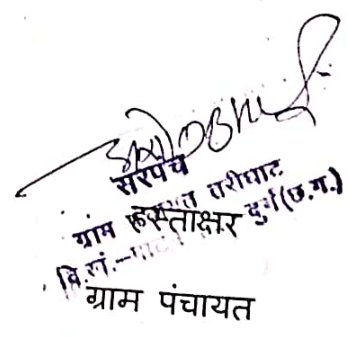 सरपंच
ग्राम तरीघाट
हस्ताक्षर
वि.खं.- दुर्ग (छ.ग.)
ग्राम पंचायत